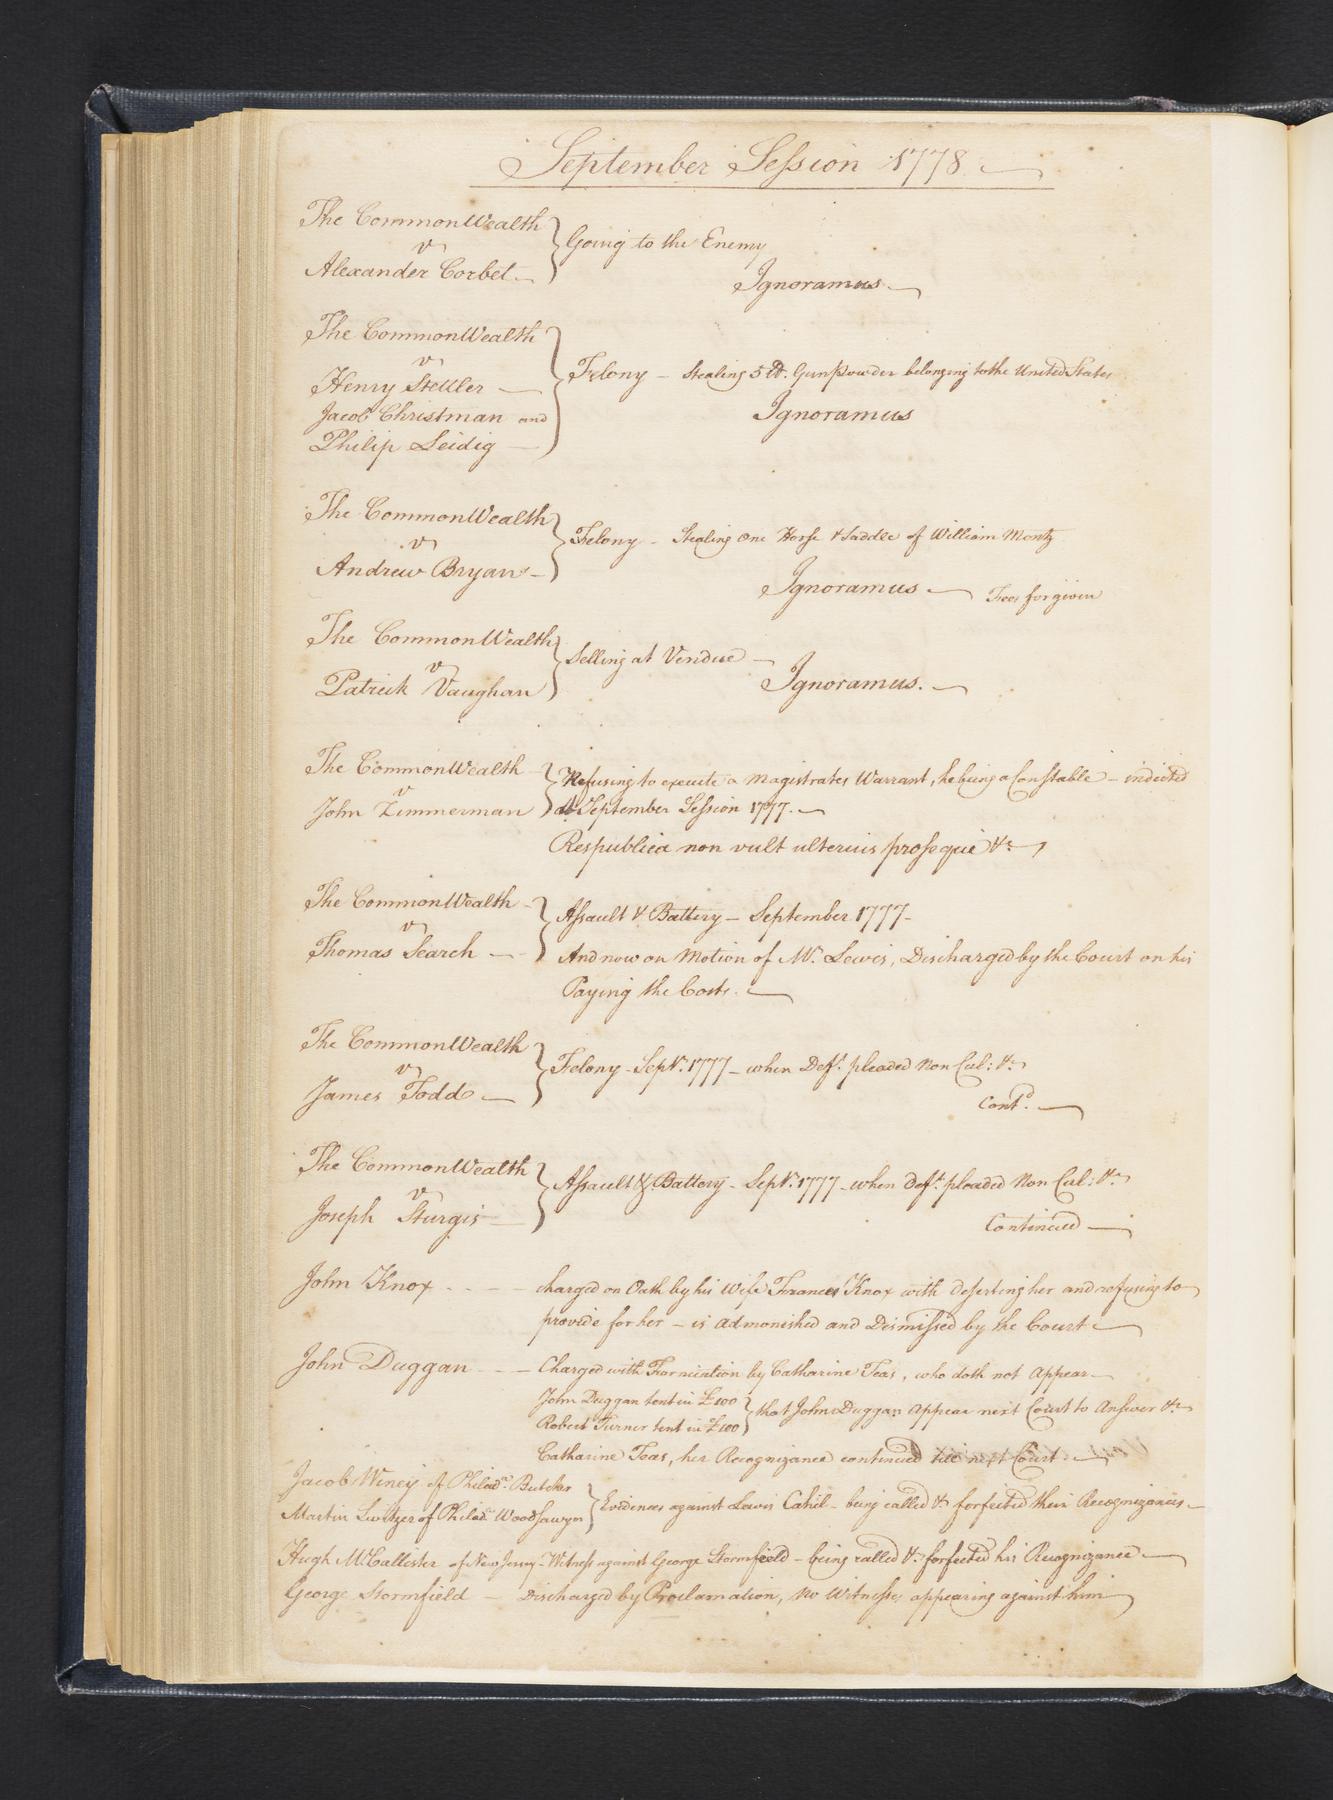 September Session 1778
The CommonWealth
v
Alexander Corbet
Going to the Enemy
Ignoramus
The CommonWealth
v
Henry Stetler
Jacob Christman and
Philip Leidig
Felony - Stealing 5 lb. Gunpowder belonging to the United States
Ignoramus
The CommonWealth
v
Andrew Bryan
Felony - Stealing One Horse & Saddle of William Montz
Ignoramus - Fees forgiven
The CommonWealth
v
Patrick Vaughan
Selling at Vendue
Ignoramus.
The CommonWealth
v
John Zimmerman
Refusing to execute a Magistrates Warrant, he being a Constable - indicted
at September Session 1777.
Respublica non vult ulterius prosequi &c
The CommonWealth
v
Thomas Search
Assault & Battery - September 1777-
And now on Motion of Mr. Lewis, Discharged by the Court on his
Paying the Costs.
The CommonWealth
v
James Todd
Felony - Septr. 1777 - when Deft. pleaded Non Cul: &c
Contd.
The CommonWealth
v
Joseph Sturgis
Assault & Battery - Septr. 1777 - when Deft. pleaded Non Cul: &c
Continued
John Knox - - - charged on Oath by his Wife Frances Knox with deserting her and refusing to
provide for her - is admonished and Dismissed by the Court
John Duggan - - Charged with Fornication by Catharine Teas, who doth not appear
John Duggan tent in £100
Robert Turner tent in £100
that John Duggan appear next Court to Answer &c
Catharine Teas, her Recognizance continued till next Court
Jacob Winey of Philada. Butcher
Martin Switzer of Philada. Wood Sawyer
Evidences against Lewis Cahil - being called &c forfeited their Recognizances
Hugh McCallister of New Jersey - Witness against George Stormfield - being called &c forfeited his Recognizance
George Stormfield - Discharged by Proclamation, no Witnesses appearing against him